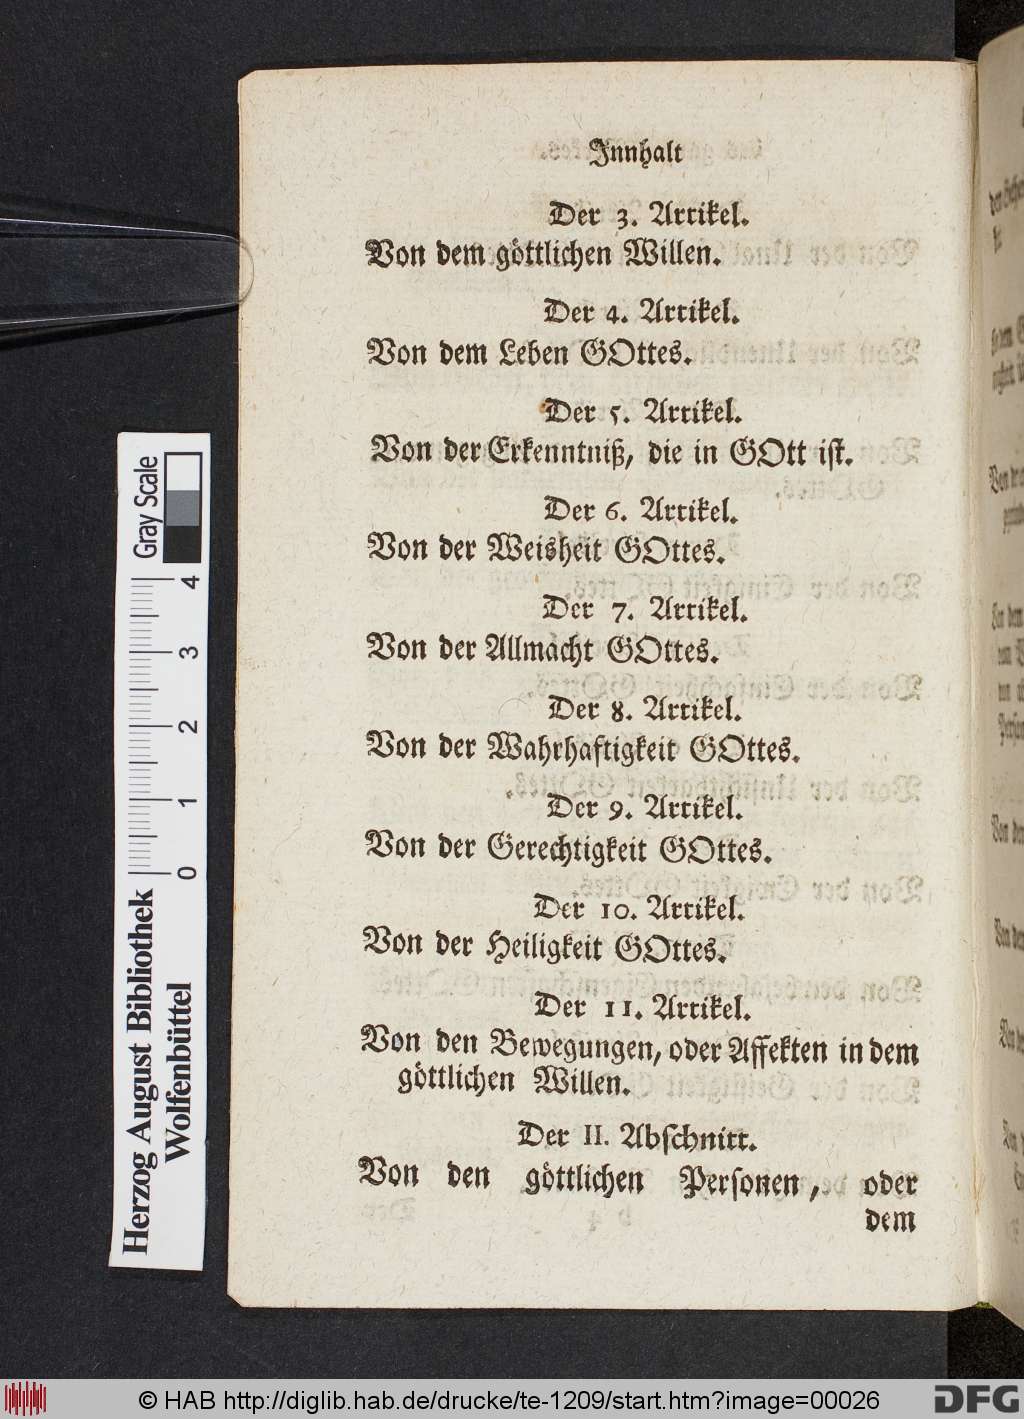 Innhalt
Der 3. Artikel.
Von dem göttlichen Willen.
Der 4. Artikel.
Von dem Leben GOttes.
Der 5. Artikel.
Von der Erkenntniß, die in GOtt iſt.
Der 6. Artikel.
Von der Weisheit GOttes.
Der 7. Artikel.
Von der Allmacht GOttes.
Der 8. Artikel.
Von der Wahrhaftigkeit GOttes.
Der 9. Artikel.
Von der Gerechtigkeit GOttes.
Der 10. Artikel.
Von der Heiligkeit GOttes.
Der 11. Artikel.
Von den Bewegungen, oder Affekten in dem
göttlichen Willen.
Der II. Abſchnitt.
Von den göttlichen Perſonen, oder
dem
Gray Scale
0 1 2 3 4
Herzog August Bibliothek
Wolfenbüttel
© HAB http://diglib.hab.de/drucke/te-1209/start.htm?image=00026
DFG